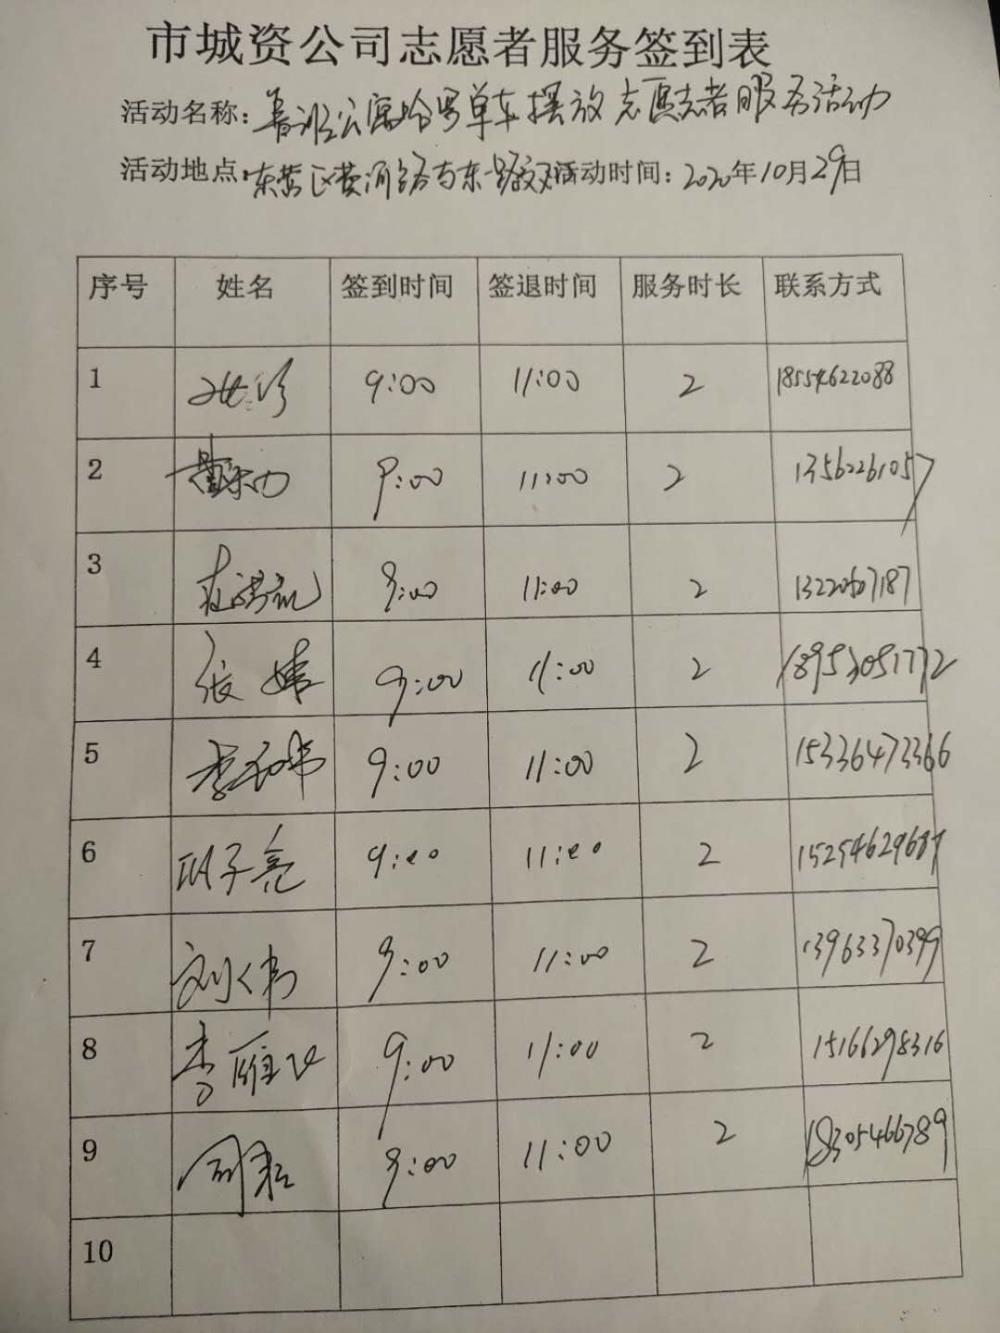 市城资公司志愿者服务签到表
活动名称：公寓哈罗单车摆放志愿者服务活动
活动地点：东营区黄河路与东路交叉 活动时间：2020年10月29日
序号 姓名 签到时间 签退时间 服务时长 联系方式
1 9:00 11:00 2 18554622088
2 9:00 11:00 2 13562261057
3 9:00 11:00 2
4 张 9:00 11:00 2 18953051772
5 李 9:00 11:00 2 15336473366
6 邱子亮 9:00 11:00 2
7 刘仁伟 9:00 11:00 2 13963370399
8 李雁飞 9:00 11:00 2 15166298316
9 周 9:00 11:00 2 18305466789
10